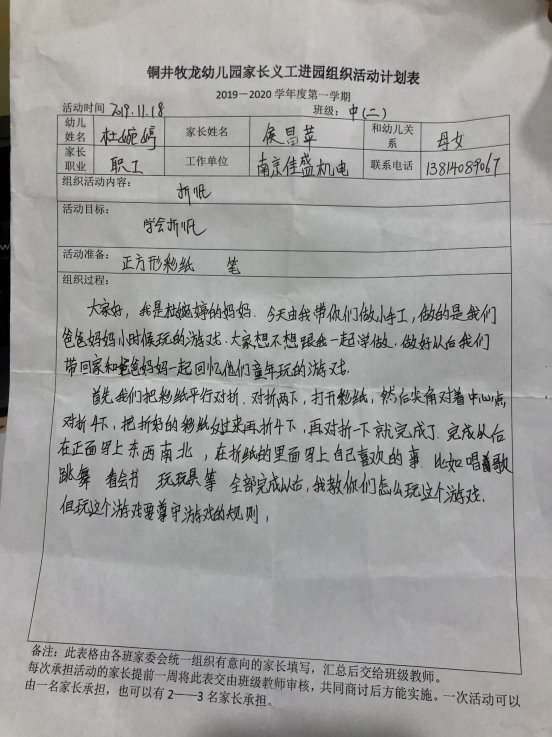 铜井牧龙幼儿园家长义工进园组织活动计划表
2019－2020 学年度第一学期
活动时间 2019.11.18 班级：中(二)
幼儿姓名 杜婉婷 家长姓名 侯昌苹 和幼儿关系 母女
家长职业 职工 工作单位 南京佳盛机电 联系电话 13814089067
组织活动内容： 折纸
活动目标：
学会折纸
活动准备： 正方形彩纸 笔
组织过程：
大家好，我是杜婉婷的妈妈．今天由我带你们做小手工，做的是我们
爸爸妈妈小时候玩的游戏．大家想不想跟我一起学做．做好以后我们
带回家和爸爸妈妈一起回忆他们童年玩的游戏．
首先我们把彩纸平行对折．对折两下，打开彩纸，然后尖角对着中心点
对折4下，把折好的彩纸反过来再折4下，再对折一下就完成了．完成以后
在正面写上东西南北，在折纸的里面写上自己喜欢的事．比如唱歌
跳舞 看会书 玩玩具等 全部完成以后，我教你们怎么玩这个游戏．
但玩这个游戏要遵守游戏的规则，
备注：此表格由各班家委会统一组织有意向的家长填写，汇总后交给班级教师。
每次承担活动的家长提前一周将此表交由班级教师审核，共同商讨后方能实施。一次活动可以
由一名家长承担，也可以有 2——3 名家长承担。